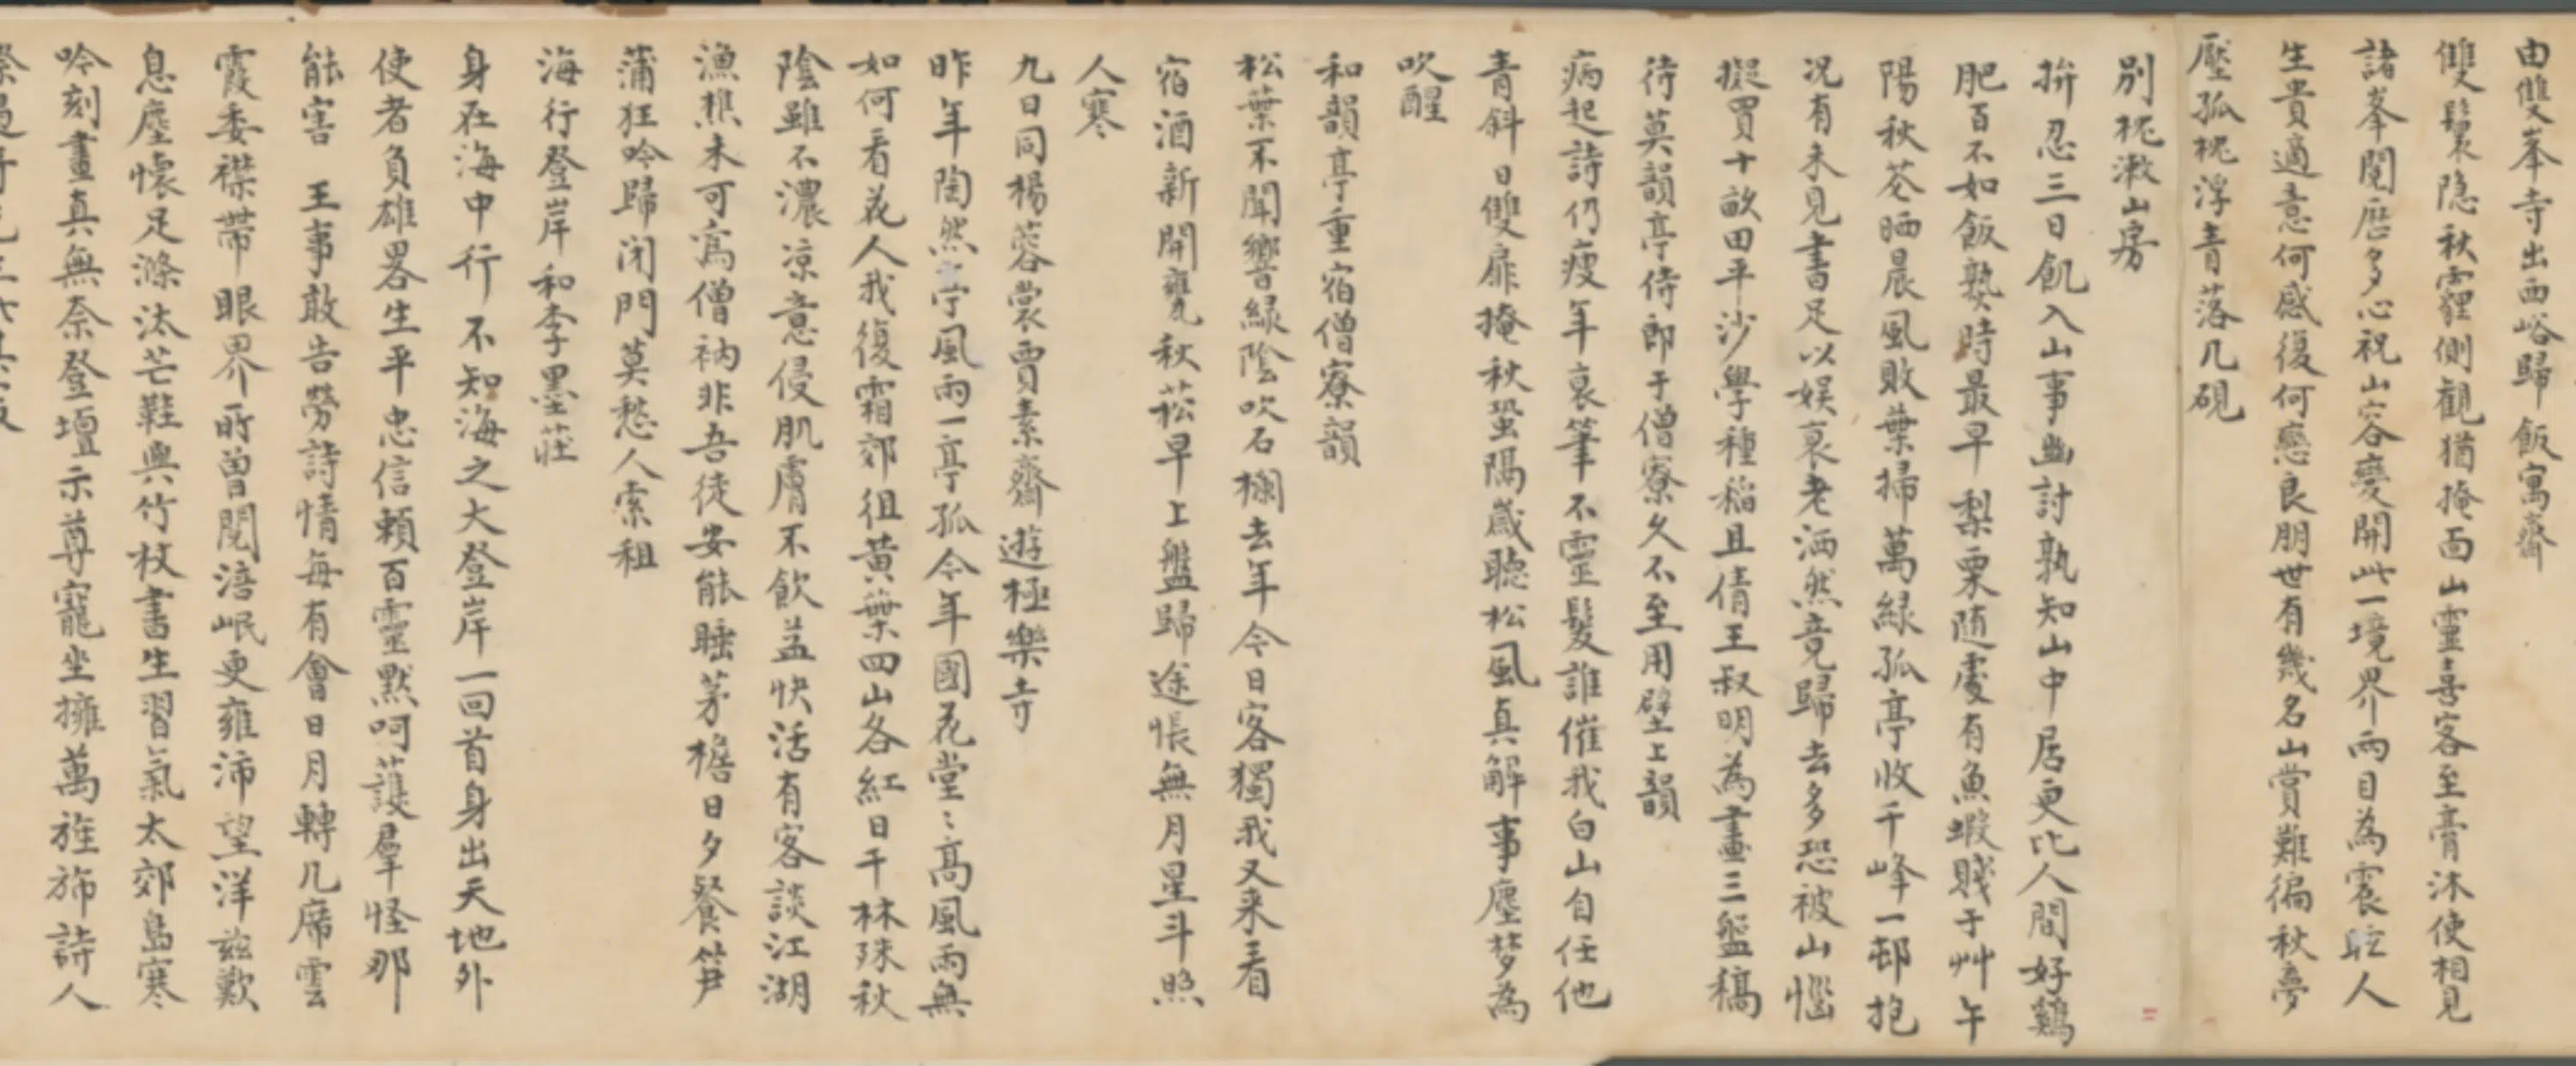 由雙峯寺出西峪歸飯寓齋
雙鬟隐秋霾側觀猶掩面山靈喜客至膏沐使相見
諸峯閱歷多心祝山容變開此一境界兩目為震眩人
生貴適意何感復何戀良朋世有幾名山賞難徧秋夢
壓孤枕浮青落几硯
別枕漱山房
拚忍三日飢入山事幽討孰知山中居更比人間好鷄
肥百不如飯熟時最早梨栗随處有魚蝦賤于艸午
陽秋茶晒晨風敗葉掃萬緑孤亭收千峰一邨抱
况有未見書足以娱衰老洒然竟歸去多恐被山惱
擬買十畝田平沙學種稻且倩王叔明為畫三盤稿
待莫韻亭侍郎于僧寮久不至用壁上韻
病起詩仍瘦年衰筆不靈髮誰催我白山自任他
青斜日雙扉掩秋蛩隔歲聽松風真解事塵梦為
吹醒
和韻亭重宿僧寮韻
松葉不聞響緑陰吹石欄去年今日客獨我又来看
宿酒新開甕秋菘早上盤歸途悵無月星斗照
人寒
九日同楊蓉裳賈素齋遊極樂寺
昨年陶然亭風雨一亭孤今年國花堂〻高風雨無
如何看花人我復霜郊徂黄葉四山各紅日千林殊秋
陰雖不濃凉意侵肌膚不飲益快活有客談江湖
漁樵未可寫僧衲非吾徒安能睡茅檐日夕餐笋
蒲狂吟歸闭門莫愁人索租
海行登岸和李墨莊
身在海中行不知海之大登岸一回首身出天地外
使者負雄畧生平忠信頼百靈默呵護羣怪那
能害 王事敢告勞詩情每有會日月轉几席雲
霞委襟帶眼界所曾閱浯岷更雍沛望洋兹歎
息塵懐足滌汰芒鞋與竹杖書生習氣太郊島寒
吟刻畫真無奈登壇示尊寵坐擁萬旌斾詩人